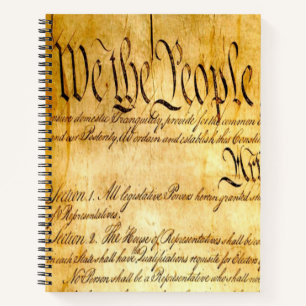 We the People
insure domestic Tranquility, provide for the common
and our Posterity, do ordain and establish this Consti
Section. 1. All legislative Powers herein granted sha
of Representatives.
Section. 2. The House of Representatives shall be co
each State shall have the Qualifications requisite for Electors
No Person shall be a Representative who shall not